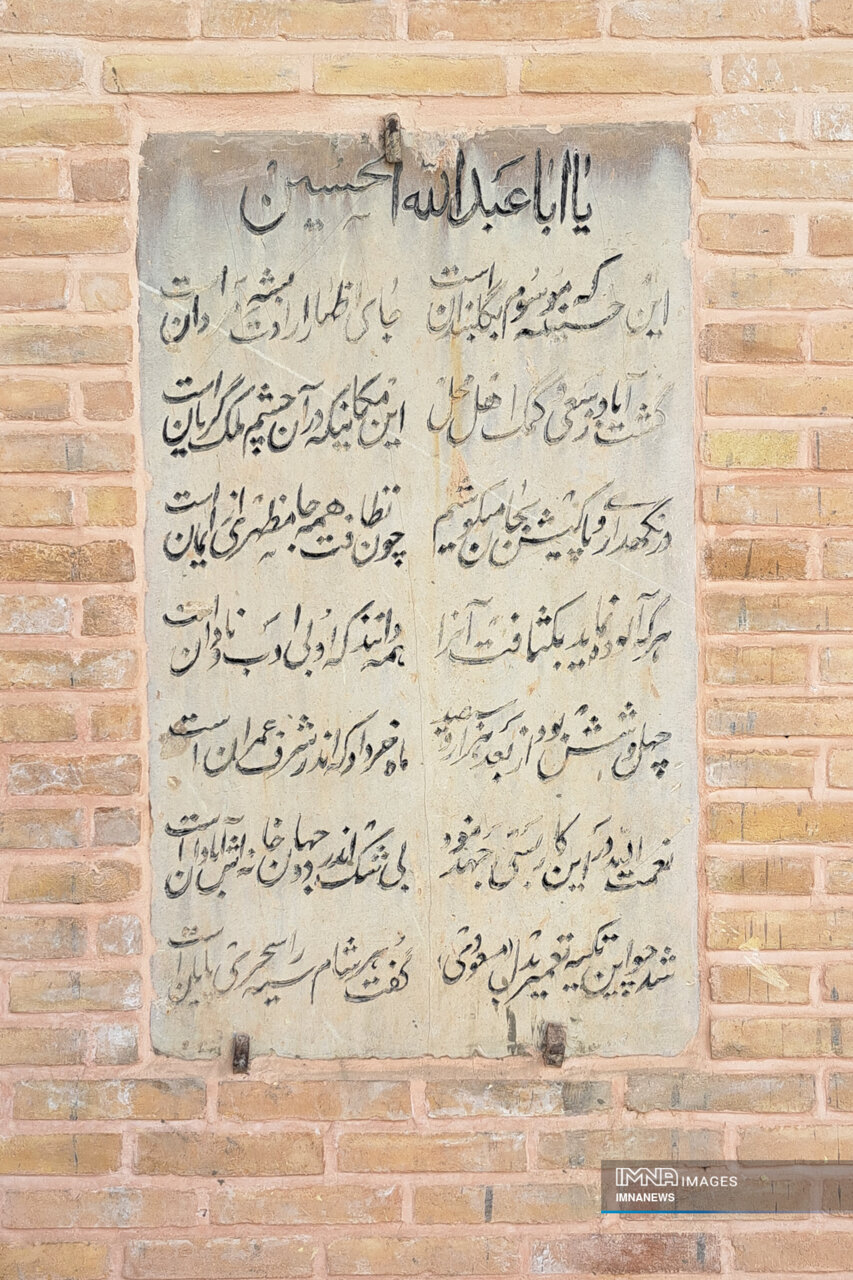 یا ابا عبدالله الحسین
این حسینیه که موسوم بگلبندان است جای اظهار ارادت بشه است
گشت آباد ز سعی و کمک اهل محل این مکانیکه در آن چشم ملک گریان است
در نگهداری و پاکیش بجان میکوشیم چون نظافت همه جا مظهری از ایمان است
هر که آلوده نماید بکثافت آنرا همه دانند که او بی ادب و نادان است
چهل و شش بود از بعد هزار و سیصد ماه خرداد که اندر شرف عمران است
نعمت الله در این کار بسی جهد نمود بی شک اندر دو جهان خانه اش آبادان است
شد چو این تکیه تعمیر بدل (مسعودی) گفت هر شام سیه را سحری پایان است
IMNA IMAGES
IMNANEWS